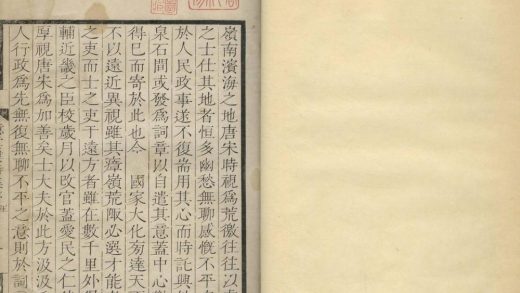 嶺南濱海之地唐宋時視為荒徼往往以處
之士仕其地者恒多幽愁無聊感慨不平
於人民政事遂不復耑用其心而時託興
泉石間或發為詞章以自遣其意葢中心
得巳而寄於此也今 國家大化旁達天下
不以遠近異視雖其瘴嶺荒陬必選才能
之吏而士之吏于遠方者雖在數千里外
輔近畿之臣校歲月以改官葢愛民之仁
厚視唐宋為加善矣士大夫於此方汲汲
人行政為先無復無聊不平之意則於詞